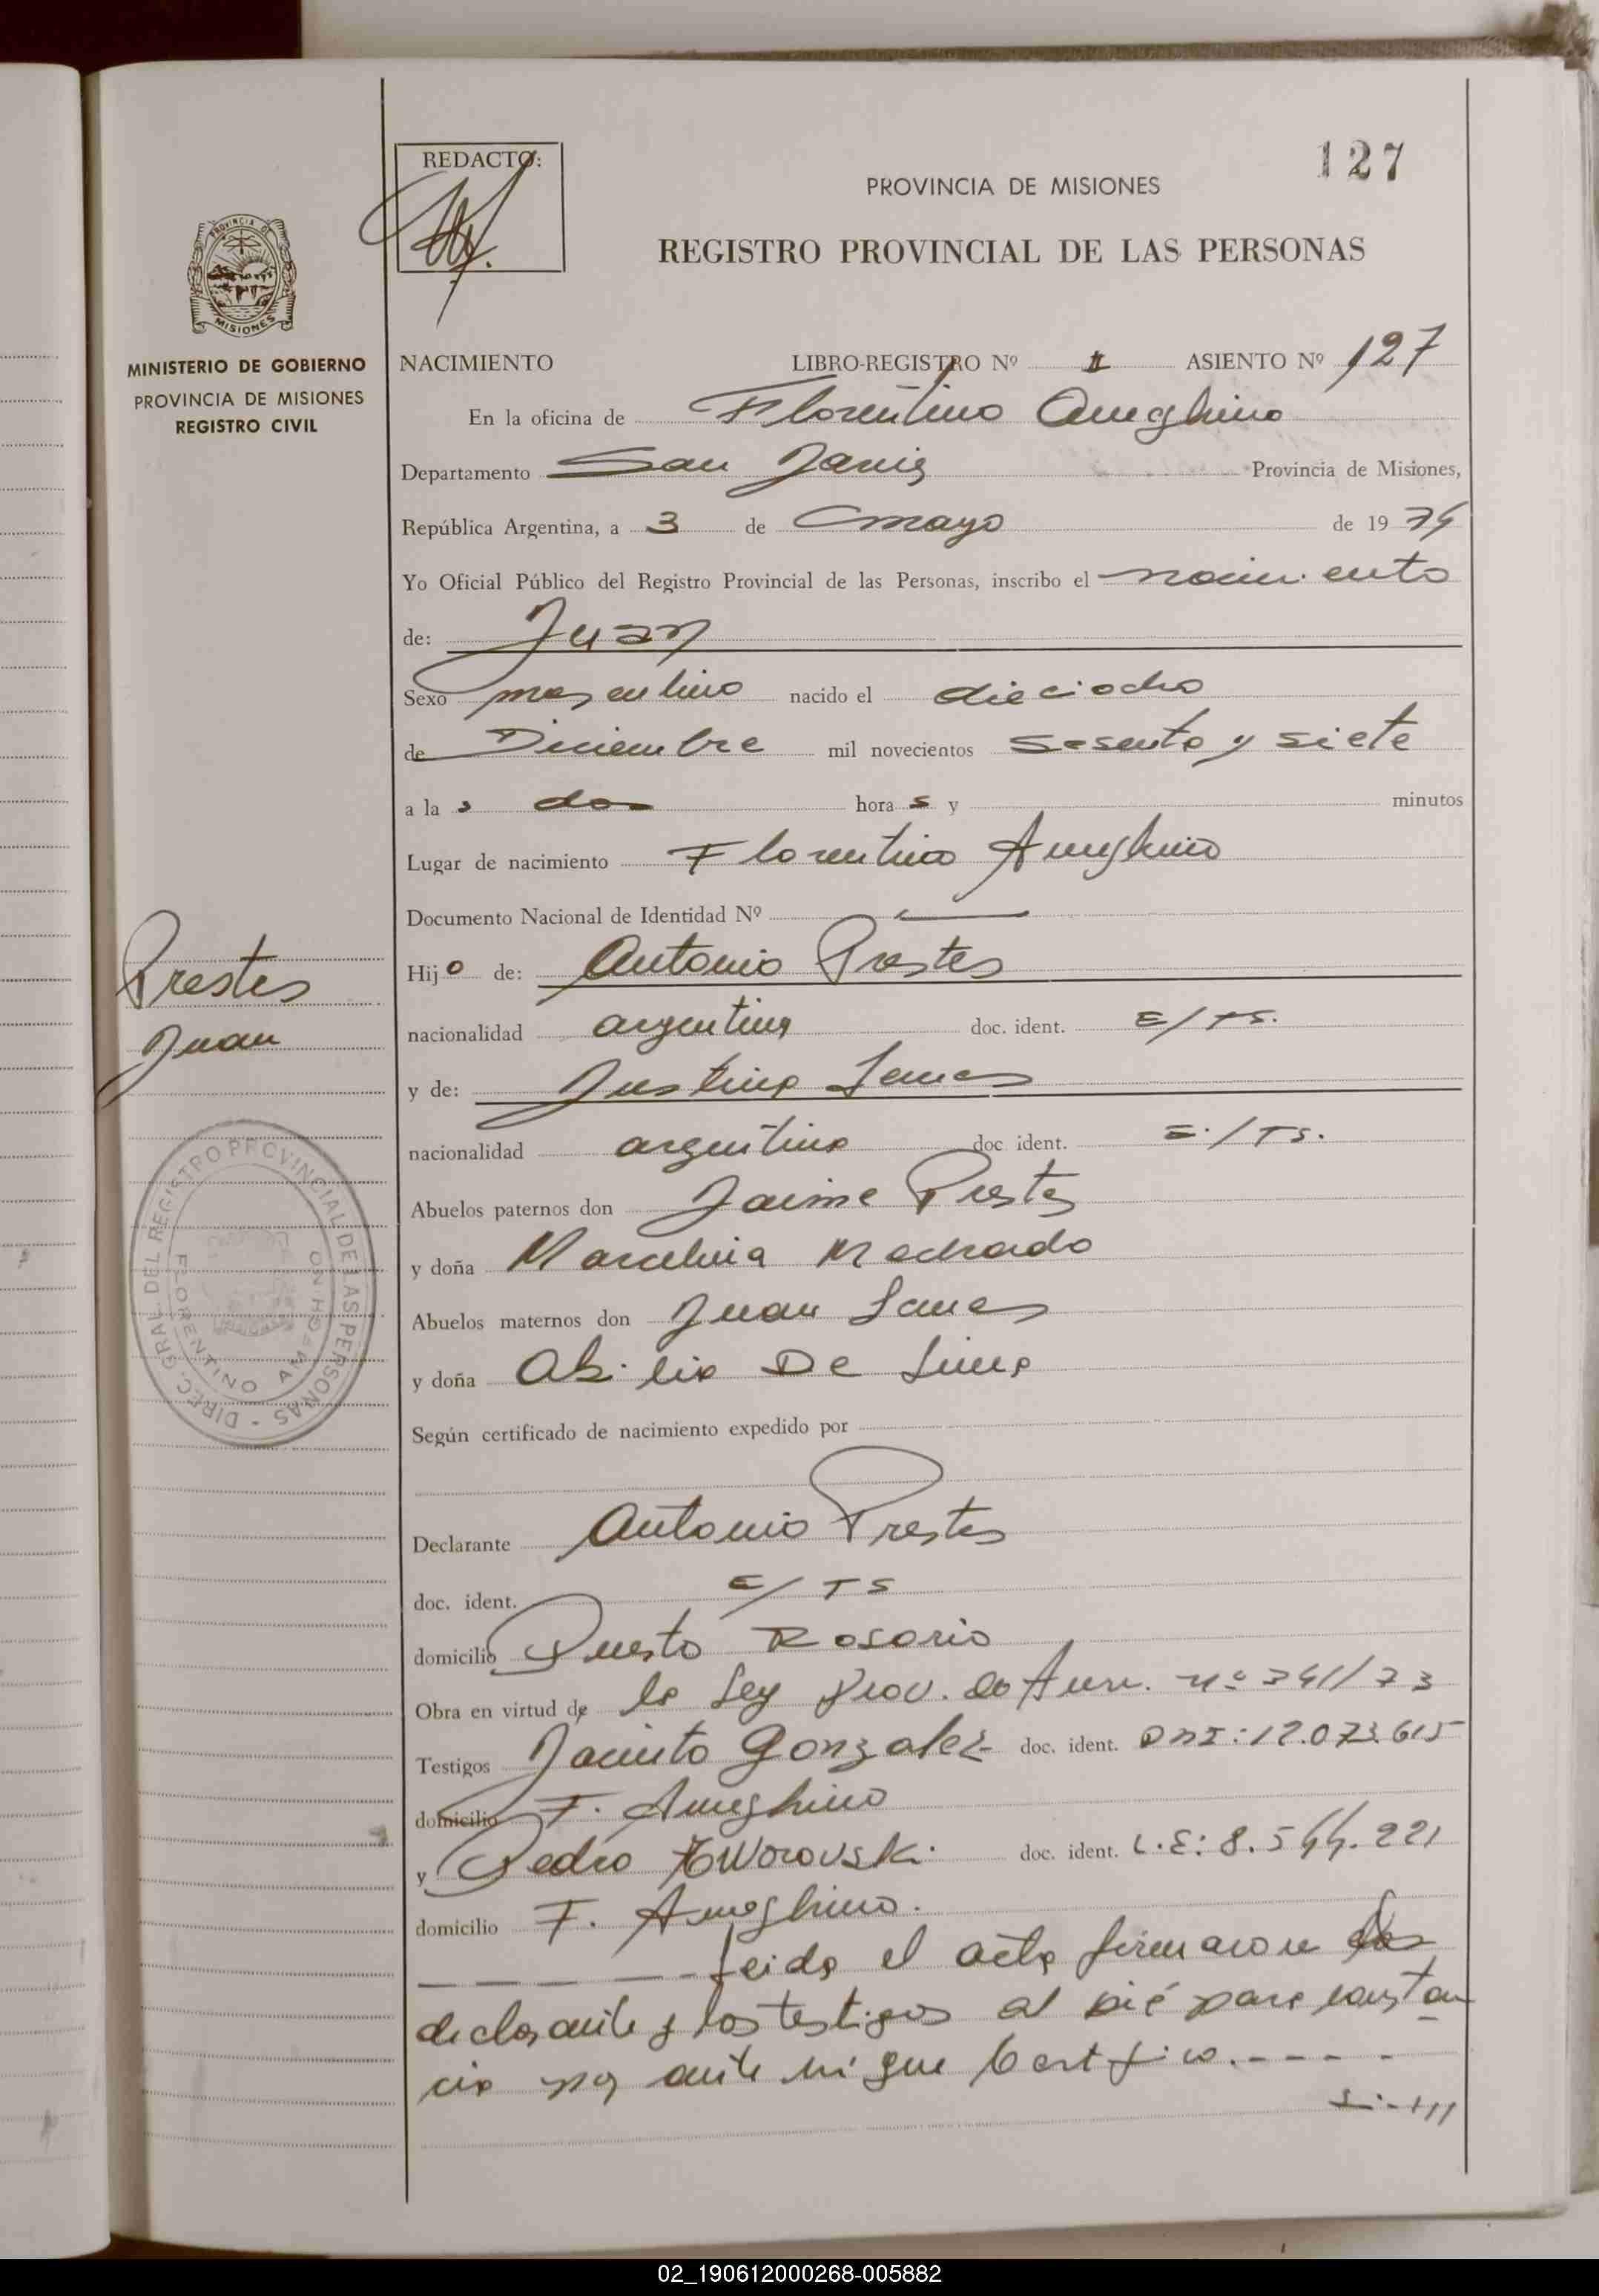 127
REDACTO:
PROVINCIA DE MISIONES
REGISTRO PROVINCIAL DE LAS PERSONAS
PROVINCIA DE MISIONES
MINISTERIO DE GOBIERNO
PROVINCIA DE MISIONES
REGISTRO CIVIL
NACIMIENTO LIBRO-REGISTRO Nº 1 ASIENTO Nº 127
En la oficina de Florentino Ameghino
Departamento San Javier Provincia de Misiones,
República Argentina, a 3 de mayo de 1974
Yo Oficial Público del Registro Provincial de las Personas, inscribo el nacimiento
de: Juan
Sexo masculino nacido el dieciocho
de Diciembre mil novecientos sesenta y siete
a la s dos hora s y minutos
Lugar de nacimiento Florentino Ameghino
Documento Nacional de Identidad Nº —
Hijo de: Antonio Prestes
nacionalidad argentina doc. ident. E/TS.
y de: Justina
nacionalidad argentina doc ident. E./TS.
Abuelos paternos don Jaime Prestes
y doña Marcelina Machado
Abuelos maternos don Juan
y doña Abilia De Lima
Según certificado de nacimiento expedido por
Declarante Antonio Prestes
doc. ident. E/TS
domicilio Puerto Rosario
Obra en virtud de la Ley Prov. de nº 341/73
Testigos Jacinto Gonzalez doc. ident. DNI: 12.073.615
domicilio F. Ameghino
y Pedro doc. ident. L.E: 8.544.221
domicilio F. Ameghino.
Leida el acta firmaron
declarante y los testigos al pié para constan
cia ante mi que Certifico. - - - -
Prestes
Juan
DIREC. GRAL. DEL REGISTRO PROVINCIAL DE LAS PERSONAS -
FLORENTINO AMEGHINO
02_190612000268-005882